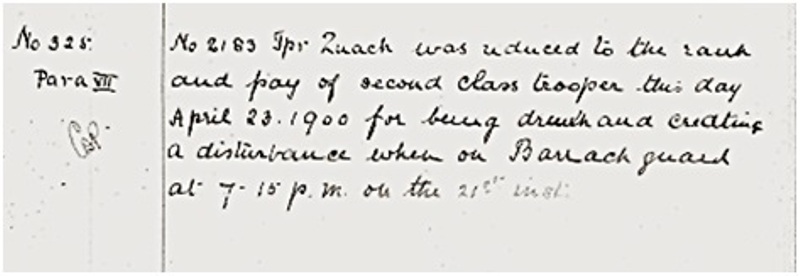 No 325.
Para VII
No 2183 Tpr Quach was reduced to the rank
and pay of second class trooper this day
April 23. 1900 for being drunk and creating
a disturbance when on Barrack guard
at 7-15 p.m. on the 21st inst.